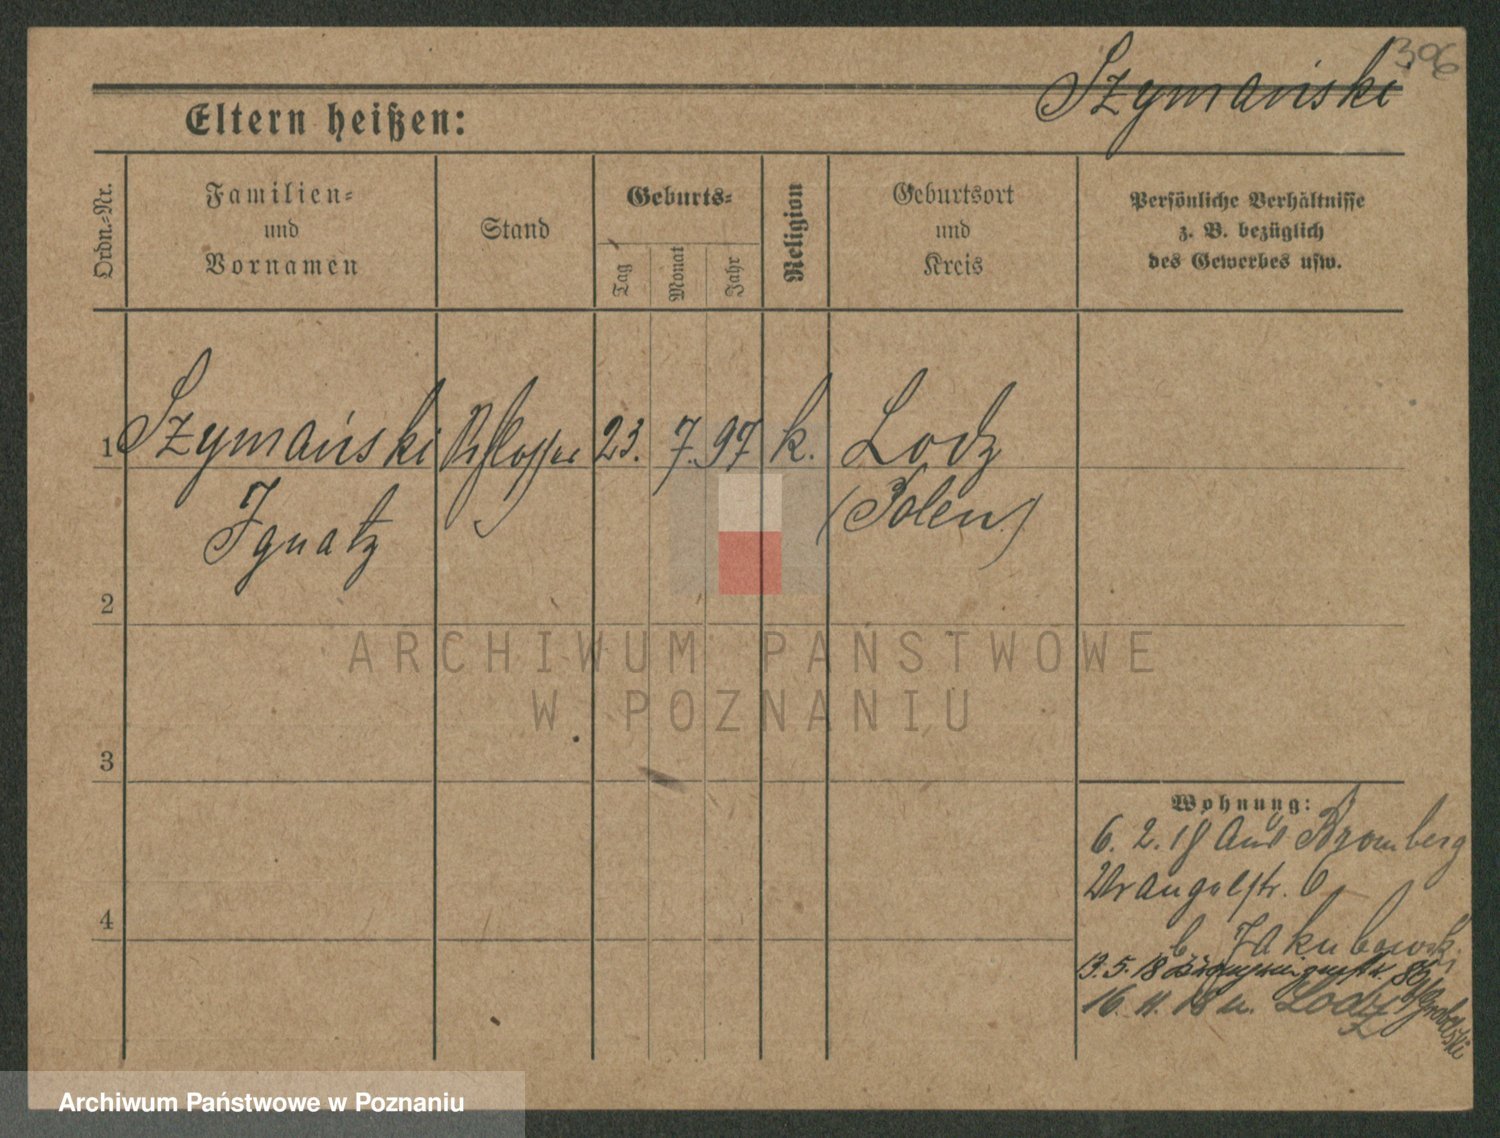 396
Szymański
Eltern heißen:
Ordn.-Nr.
Familien-
und
Vornamen
Stand
Geburts-
Tag
Monat
Jahr
Religion
Geburtsort
und
Kreis
Persönliche Verhältnisse
z. B. bezüglich
des Gewerbes usw.
1 Szymański Schlosser 23. 7. 97 k. Lodz
Ignatz (Polen)
2
3
4
Wohnung:
6. 2. 18 aus Bromberg
Wrangelstr. 6
b. Jakubowski
13. 5. 18
16. 11. 18 n. Lodz
ARCHIWUM PAŃSTWOWE
W POZNANIU
Archiwum Państwowe w Poznaniu